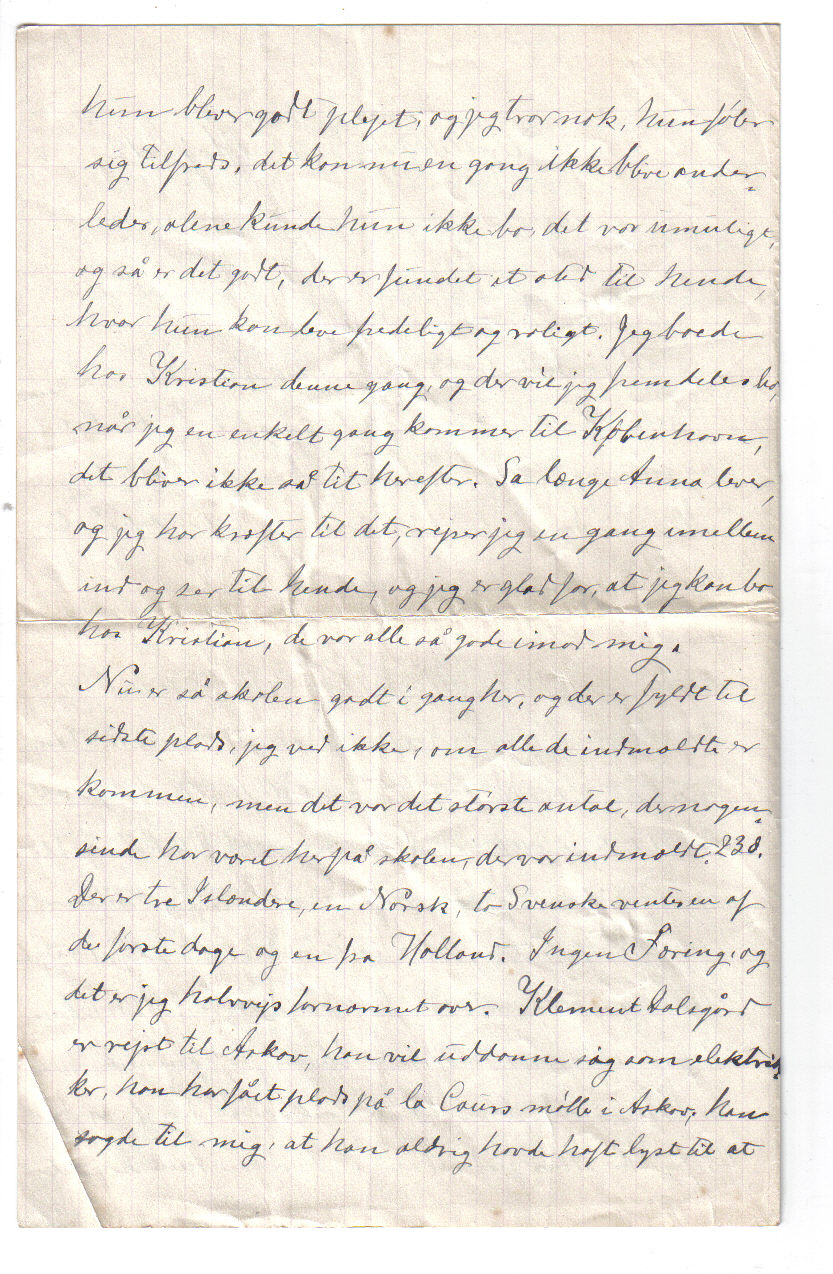 hun bliver godt plejet, og jeg tror nok, hun føler
sig tilfreds, det kan nu en gang ikke blive ander-
ledes, alene kunde hun ikke bo, det var umuligt,
og så er det godt, der er fundet et sted til hende,
hvor hun kan leve fredeligt og roligt. Jeg boede
hos Kristian denne gang, og der vil jeg fremdeles bo,
når jeg en enkelt gang kommer til København,
det bliver ikke så tit herefter. Sa længe Anna lever,
og jeg har kræfter til det, rejser jeg en gang imellem
ind og ser til hende, og jeg er glad for, at jeg kan bo
hos Kristian, de var alle så gode imod mig.
Nu er så skolen godt i gang her, og der er fyldt til
sidste plads, jeg ved ikke, om alle de indmeldte er
kommen, men det var det største antal, der nogen-
sinde har været her på skolen, der var indmeldt 238.
Der er tre Islændere, en Norsk, to Svenske ventes en af
de første dage og en fra Holland. Ingen Færing, og
det er jeg halvvejs fornærmet over. Klement Dalsgård
er rejst til Askov, han vil uddanne sig som elektri-
ker, han har fået plads på la Cours mølle i Askov, han
sagde til mig, at han aldrig havde haft lyst til at